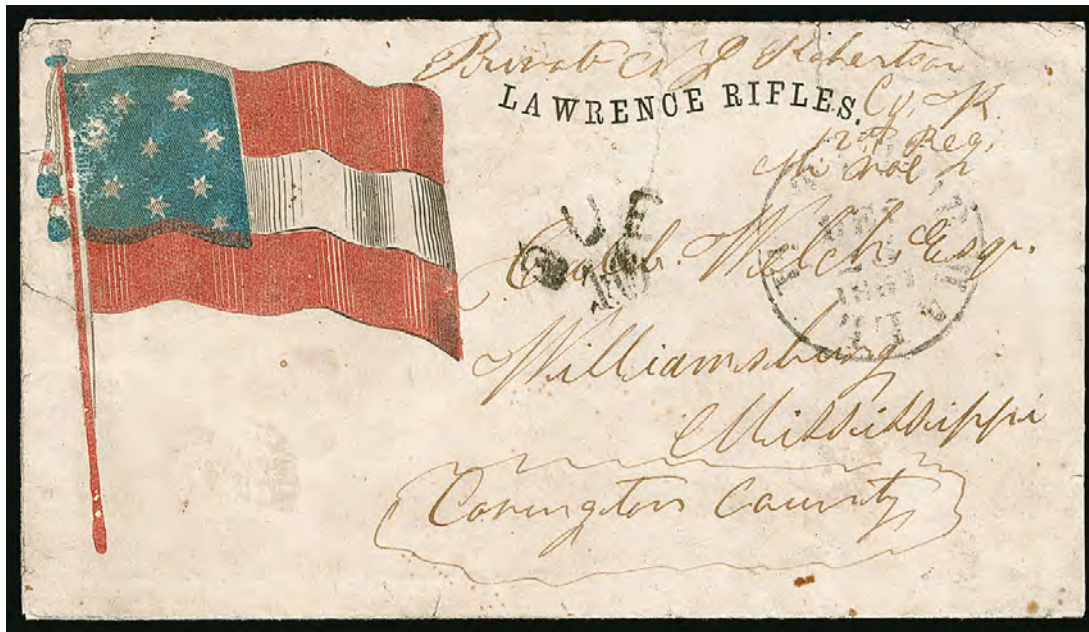 Private J Robertson
LAWRENCE RIFLES.
Co, K.
12th Reg,
Mi Vol
DUE
10
Caleb. Welch. Esqr.
Williamsburg
Mississippi
Covington County